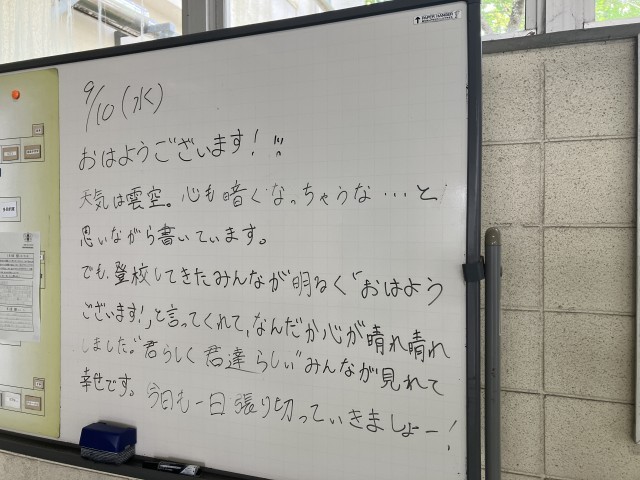 PAPER HANGER
9/10(水)
おはようございます!!!
天気は雲空。心も暗くなっちゃうな…と
思いながら書いています。
でも、登校してきたみんなが明るく“おはよう
ございます!„と言ってくれて、なんだか心が晴れ晴れ
しました。“君らしく君達らしい”みんなが見れて
幸せです。今日も一日張り切っていきましょー!